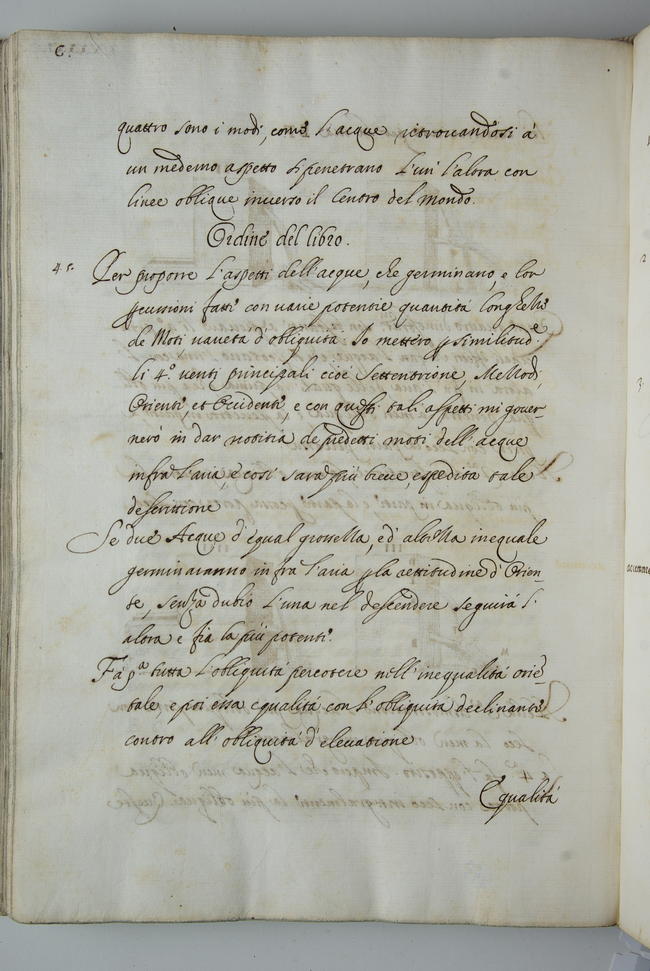 C.
quattro sono i modi, come l'acque, ritrovandosi à
un medemo aspetto si penetrano l'un' l'altra con
linee oblique inverso il Centro del mondo.
Ordine del libro.
45. Per proporre l'aspetti dell'acque, che germinano, e lor
p̱cussioni fatte con varie potentie quantità longhezze
de Moti, varietà d'obliquità: Io metterò p̱ similitud.e
li 4.o venti principali cioè Settentrione, Mezzodì,
Oriente, et Occidente, e con questi tali aspetti mi gover-
nerò in dar notitia de p̱detti moti dell'acque
infra l'aria, e così sarà più breve, espedita tale
descrittione
Se due Acque d'egual grossezza, ed' altezza inequale
germinaranno infra l'aria p̱ la rettitudine d'Orien-
te, senza dubio l'una nel descendere seguirà l'
altra e fia la più potente.
Fa p.a tutta l'obliquità percotere nell'inequalità orien-
tale, e poi essa equalità con l'obliquità declinante
contro all'obliquità d'elevatione
Equalità